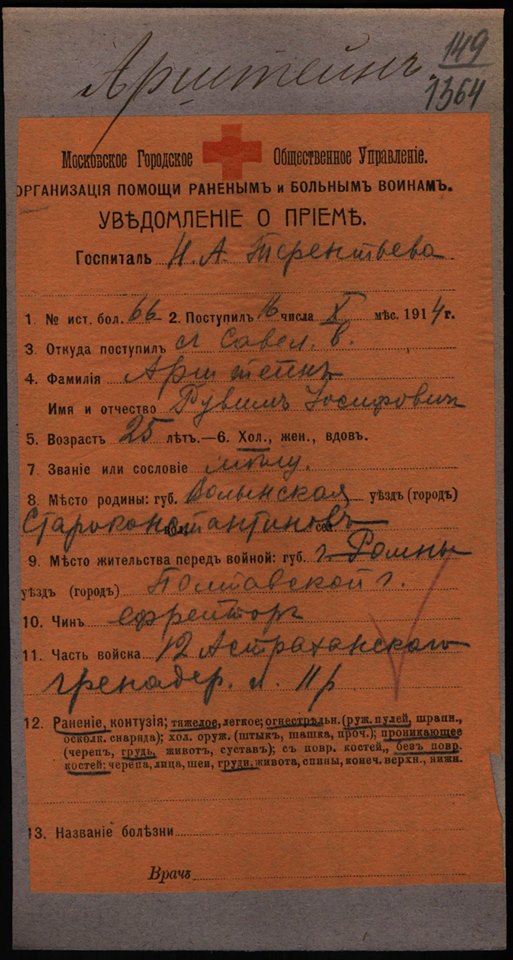 Арштейнъ
149
1364
Московское Городское Общественное Управленіе.
ОРГАНИЗАЦІЯ ПОМОЩИ РАНЕНЫМЪ и БОЛЬНЫМЪ ВОИНАМЪ.
УВѢДОМЛЕНІЕ О ПРІЕМѢ.
Госпиталь Н. А. Терентьева
1. № ист. бол. 66 2. Поступил 16 числа X мѣс. 1914 г.
3. Откуда поступил съ Савел. в.
4. Фамилія Арштейнъ
Имя и отчество Рувимъ Іосифович
5. Возрастъ 25 лѣтъ.—6. Хол., жен., вдов.
7. Званіе или сословіе
8. Мѣсто родины: губ. Волынская уѣздъ (городъ)
Староконстантиновъ
9. Мѣсто жительства передъ войной: губ. г. Ромны
уѣздъ (городъ) Полтавской г.
10. Чинъ ефрейтор
11. Часть войска 12 Астраханского
гренадер. п. 11 р
12. Раненіе, контузія; тяжелое, легкое; огнестрѣльн. (руж. пулей, шрапн.,
осколк. снаряда); хол. оруж. (штык, шашка, проч.); проникающее
(черепъ, грудь, животъ, сустав); съ повр. костей,, безъ повр.
костей; черепа, лица, шеи, груди, живота, спины, конеч. верхн., нижн.
13. Названіе болѣзни
Врачъ